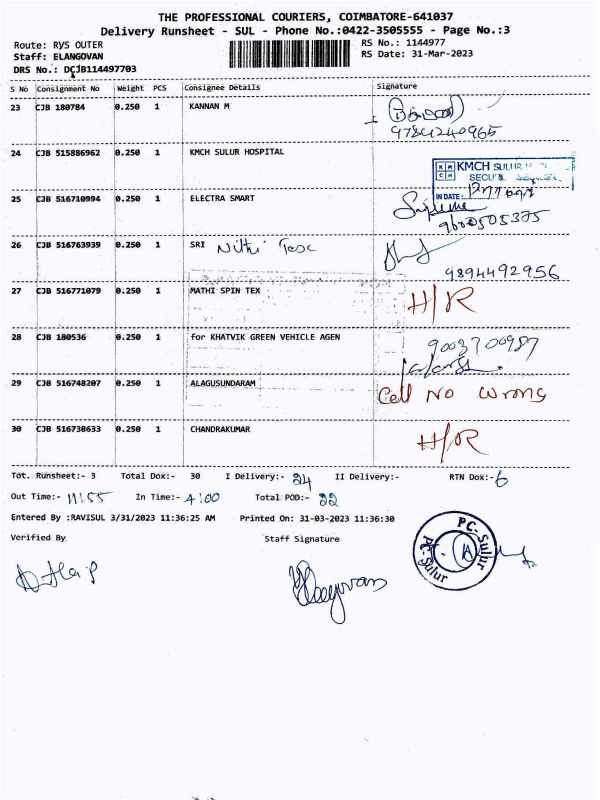 THE PROFESSIONAL COURIERS, COIMBATORE-641037
Delivery Runsheet - SUL - Phone No.:0422-3505555 - Page No.:3
Route: RYS OUTER RS No.: 1144977
Staff: ELANGOVAN RS Date: 31-Mar-2023
DRS No.: DCJB114497703
S No Consignment No Weight PCS Consignee Details Signature
23 CJB 180784 0.250 1 KANNAN M
9784240965
24 CJB 515886962 0.250 1 KMCH SULUR HOSPITAL
KMCH SULUR
IN DATE:
25 CJB 516710994 0.250 1 ELECTRA SMART
9600505375
26 CJB 516763939 0.250 1 SRI Nithi Tex
9894492956
27 CJB 516771079 0.250 1 MATHI SPIN TEX H/R
28 CJB 180536 0.250 1 for KHATVIK GREEN VEHICLE AGEN
9003700987
29 CJB 516748207 0.250 1 ALAGUSUNDARAM Cell No Wrong
30 CJB 516738633 0.250 1 CHANDRAKUMAR H/R
Tot. Runsheet:- 3 Total Dox:- 30 I Delivery:- 24 II Delivery:- RTN Dox:- 6
Out Time:- 11:55 In Time:- 4:00 Total POD:- 22
Entered By :RAVISUL 3/31/2023 11:36:25 AM Printed On: 31-03-2023 11:36:30
Verified By Staff Signature
PC-Sulur
PC-Sulur
Elangovan